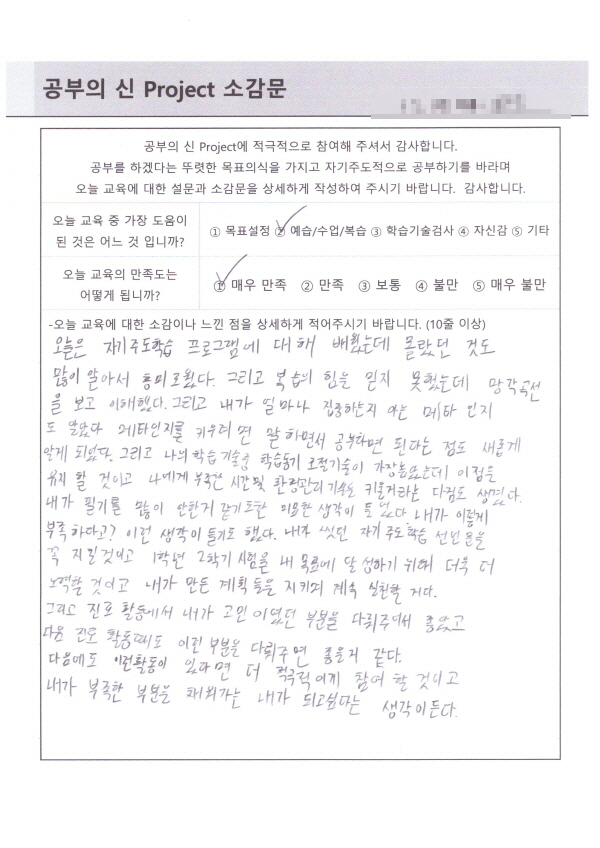 공부의 신 Project 소감문
공부의 신 Project에 적극적으로 참여해 주셔서 감사합니다.
공부를 하겠다는 뚜렷한 목표의식을 가지고 자기주도적으로 공부하기를 바라며
오늘 교육에 대한 설문과 소감문을 상세하게 작성하여 주시기 바랍니다. 감사합니다.
오늘 교육 중 가장 도움이
된 것은 어느 것 입니까?
① 목표설정 ② 예습/수업/복습 ③ 학습기술검사 ④ 자신감 ⑤ 기타
오늘 교육의 만족도는
어떻게 됩니까?
① 매우 만족 ② 만족 ③ 보통 ④ 불만 ⑤ 매우 불만
-오늘 교육에 대한 소감이나 느낀 점을 상세하게 적어주시기 바랍니다. (10줄 이상)
오늘은 자기주도학습 프로그램에 대해 배웠는데 몰랐던 것도
많이 알아서 흥미로웠다. 그리고 복습의 힘을 믿지 못했는데 망각곡선
을 보고 이해했다. 그리고 내가 얼마나 집중하는지 아는 메타 인지
도 알았다 메타인지를 키우려면 말하면서 공부하면 된다는 점도 새롭게
알게 되었다. 그리고 나의 학습기술중 학습동기 조절기술이 가장높았는데 이점을
유지 할 것이고 나에게 부족한 시간및 환경관리 기술도 키울거라는 다짐도 생겼다.
내가 필기를 많이 안한거 같기도한 미묘한 생각이 들었다 내가 이렇게
부족하다고? 이런 생각이 들기도 했다. 내가 썼던 자기주도학습 선언문을
꼭 지킬것이고 1학년 2학기 시험을 내 목표에 달성하기 위해 더욱 더
노력할 것이고 내가 만든 계획들을 지키며 계속 실천할 거다.
그리고 진로 활동에서 내가 고민이었던 부분을 다뤄주어서 좋았고
다음 진로 활동때도 이런 부분을 다뤄주면 좋을거 같다.
다음에도 이런활동이 있다면 더 적극적이게 참여 할 것이고
내가 부족한 부분을 채워가는 내가 되고싶다는 생각이든다.